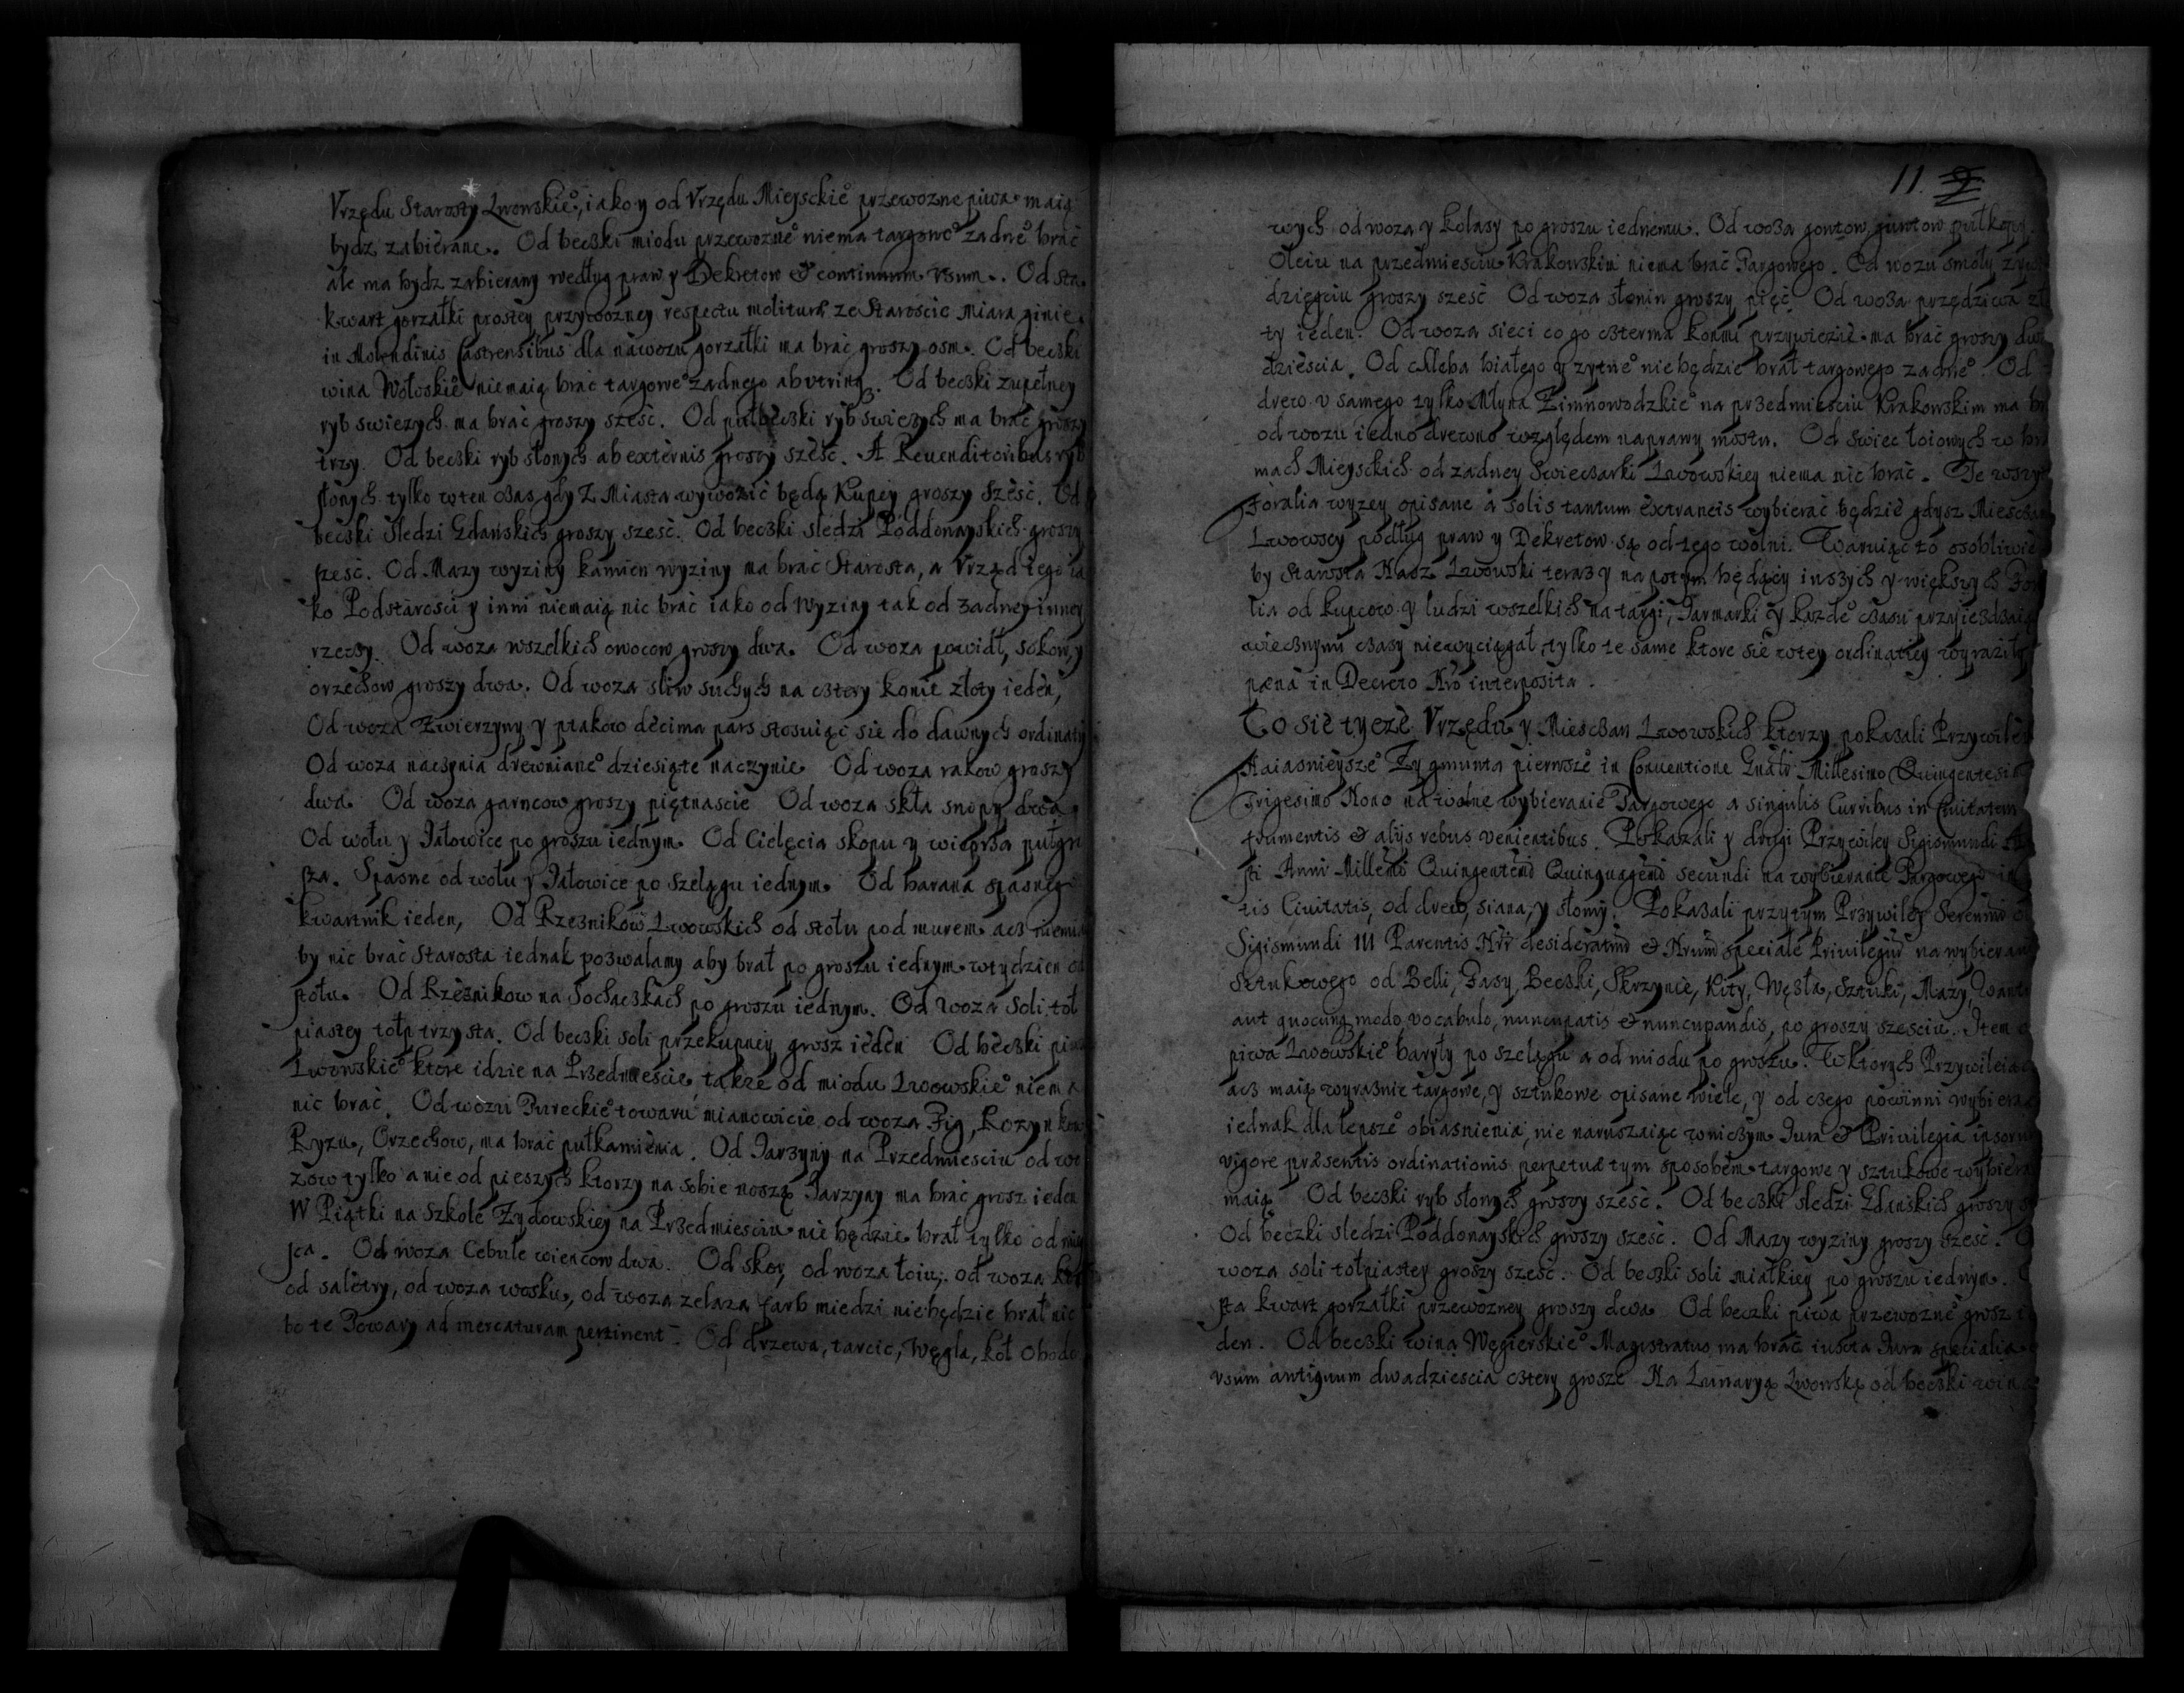 Vrzędu Starosty Lwowskie°, iako y od Vrzędu Mieysckie° przewozne piwa maią
bydz zabierane. Od beczki miodu przewozne° niema targowe° zadne° brać
ale ma bydz zabierany według praw y Dekretow & continuum vsum. Od sta
kwart gorzałki prostey przywozney respectu molituræ ze Staroscie miara ginie
in Molendinis Castrensibus dla nawozu gorzałki ma brać groszy osm. Od beczki
wina Wołoskie° niemaią brać targowe° zadnego abutrinq. Od beczki zupełney
ryb swiezych ma brać groszy szesć. Od pułbeczki ryb swiezych ma brać groszy
trzy. Od beczki ryb słonych ab externis groszy szesć. A Reuenditoribus ryb
słonych tylko wten czas gdy z Miasta wywozić będą Kupcy groszy szesć. Od
beczki sledzi Gdańskich groszy szesć. Od beczki sledzi Poddonayskich groszy
szesć. Od Mazy wyziny kamien wyziny ma brać Starosta, a Vrząd iego ia
ko Podstarosci y inni niemaią nic brać iako od Wyziny tak od zadney inney
rzeczy. Od woza wszelkich owocow groszy dwa. Od woza powidł, sokow, y
orzechow groszy dwa. Od woza sliw suchych na cztery konie złoty ieden,
Od woza Zwierzyny y ptakow decima pars stosuiąc sie do dawnych ordinaty
Od woza naczynia drewniane° dziesiąte naczynie Od woza rakow groszy
dwa. Od woza garncow groszy piętnascie Od woza skła snopy dwa
Od wołu y Jałowice po groszu iednym. Od Cielęcia skopu y wieprza pułgro
sza. Spasne od wołu y Jałowice po szelągu iednym. Od barana spasneg
kwartnik ieden, Od Rzeznikow Lwowskich od stołu pod murem acz niemia
by nic brać Starosta iednak pozwalamy aby brał po groszu iednym wtydzien od
stołu. Od Rzeznikow na Sochaczkach po groszu iednym. Od woza Soli toł
piastey tołp trzysta. Od beczki soli przekupney grosz ieden Od beczki piwa
Lwowskie° ktore idzie na Przedmiescie, także od miodu Lwowskie° niema
nic brać. Od wozu Tureckie° towaru mianowicie od woza Fig, Rozynkow
Ryzu, Orzechow, ma brać pułkamienia. Od Jarzyny na Przedmiesciu od wo
zow tylko a nie od pieszych ktorzy na sobie noszą Jarzyny ma brać grosz ieden
W Piątki na Szkole Zydowskiey na Przedmiesciu nie będzie brał tylko od mię
sca. Od woza Cebule wiencow dwa. Od skor, od woza łoiu, od woza
od saletry, od woza wosku, od woza zelaza farb miedzi niebędzie brał nic
bo te Towary ad mercaturam pertinent Od drzewa, tarcic, Węgla, koł Obodo
11
wych od woza y kolasy po groszu iednemu. Od woza gontow guntow pułkopy.
Oleiu na przedmiesciu Krakowskim niema brać Targowego. Od wozu smoły
dziegciu groszy szesć Od woza słonin groszy pięć Od woza przędziwa zł
ty ieden. Od woza sieci co go czterma końmi przywiezie ma brać groszy dwa
dziescia. Od chleba białego y zytne° niebędzie brał targowego zadne°. Od
drew v samego tylko Młyna Zimnowodzkie° na przedmiesciu Krakowskim ma br
od wozu iedno drewno względem naprawy mostu. Od swiec łoiowych w bra
mach Mieysckich od zadney Swieczarki Lwowskiey niema nic brać. Te wszyt
Foralia wyzey opisane a solis tantum extraneis wybierać będzie gdysz Miesczan
Lwowscy podług praw y Dekretow są od tego wolni. Waruiąc to osobliwie
by Starosta Nasz Lwowski teraz y napotym będący inszych y większych For
lia od kupcow y ludzi wszelkich na targi, Jarmarki y kazde° czasu przyiezdzaią
wiecznymi czasy niewyciągał, tylko te same ktore sie wtey ordinatiey wyraziły
pœna in Decreto Nro interposita.
Co sie tycze Vrzędu y Miesczan Lwowskich ktorzy pokazali Przywiley
Naiasnieysze° Zygmunta pierwsze° in Conuentione Gnali Millesimo Quingentesimo
Trigesimo Nono na wolne wybieranie Targowego a singulis Curribus in Ciuitatem
frumentis & alijs rebus venientibus. Pokazali y drugi Przywiley Sigismundi
sti Anni Millemi Quingentmi Quinquagemi secundi na wybieranie Targowego in
tis Ciuitatis, od drew, siana, y słomy. Pokazali przytym Przywiley Serenmi
Sigismundi III Parentis Nri desideratmi & Nrum speciale Priuilegium na wybieran
Sztukowego od Belli, Fasy, Beczki, Skrzynie, Kity, Węzła, Sztuki, Mazy,
aut quocunq modo vocabulo, nuncupatis & nuncupandis, po groszy szesciu. Item
piwa Lwowskie° baryły po szelągu a od miodu po groszu. W ktorych Przywileiac
acz maią wyraznie targowe, y sztukowe opisane wiele, y od czego powinni wybiera
iednak dla lepsze° obiasnienia, nie naruszaiąc wniczym Jura & Priuilegia ipsorum
vigore præsentis ordinationis perpetuæ tym sposobem targowe y sztukowe wybiera
maią Od beczki ryb słonych groszy szesć. Od beczki sledzi Gdanskich groszy
Od beczki sledzi Poddonayskich groszy szesć. Od Mazy wyziny groszy szesć.
woza soli tołpiastey groszy szesć. Od beczki soli miałkiey po groszu iednym.
sta kwart gorzałki przewozney groszy dwa Od beczki piwa przewozne° grosz i
den. Od beczki wina Węgierskie° Magistratus ma brać iuxta Jura specialia
vsum antiquum dwadziescia cztery grosze Na Lunaryą Lwowską od beczki wina